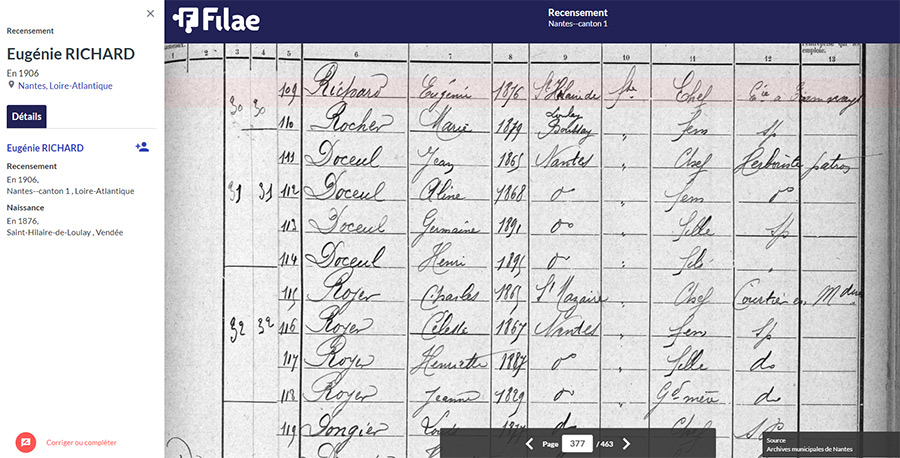 Recensement
Eugénie RICHARD
En 1906
Nantes, Loire-Atlantique
Détails
Eugénie RICHARD
Recensement
En 1906,
Nantes--canton 1 , Loire-Atlantique
Naissance
En 1876,
Saint-Hilaire-de-Loulay , Vendée
Corriger ou compléter
Filae
Recensement
Nantes--canton 1
1 2 3 4 5 6 7 8 9 10 11 12 13
30 30 109 Richard Eugénie 1876 St Hilaire de Fse Chef
Loulay
110 Rocher Marie 1879 Boussay " fem sp
111 Doceul Jean 1865 Nantes " Chef Herboriste patron
31 31 112 Doceul Aline 1868 do " fem do
113 Doceul Germaine 1891 do " fille sp
114 Doceul Henri 1895 do " fils "
115 Royer Charles 1865 St Nazaire " Chef Courtier en
32 32 116 Royer Céleste 1867 Nantes " fem sp
117 Royer Henriette 1887 do " fille do
118 Royer Jeanne 1829 do " Gd mère do
119 Chef
Page 377 / 463
Source
Archives municipales de Nantes